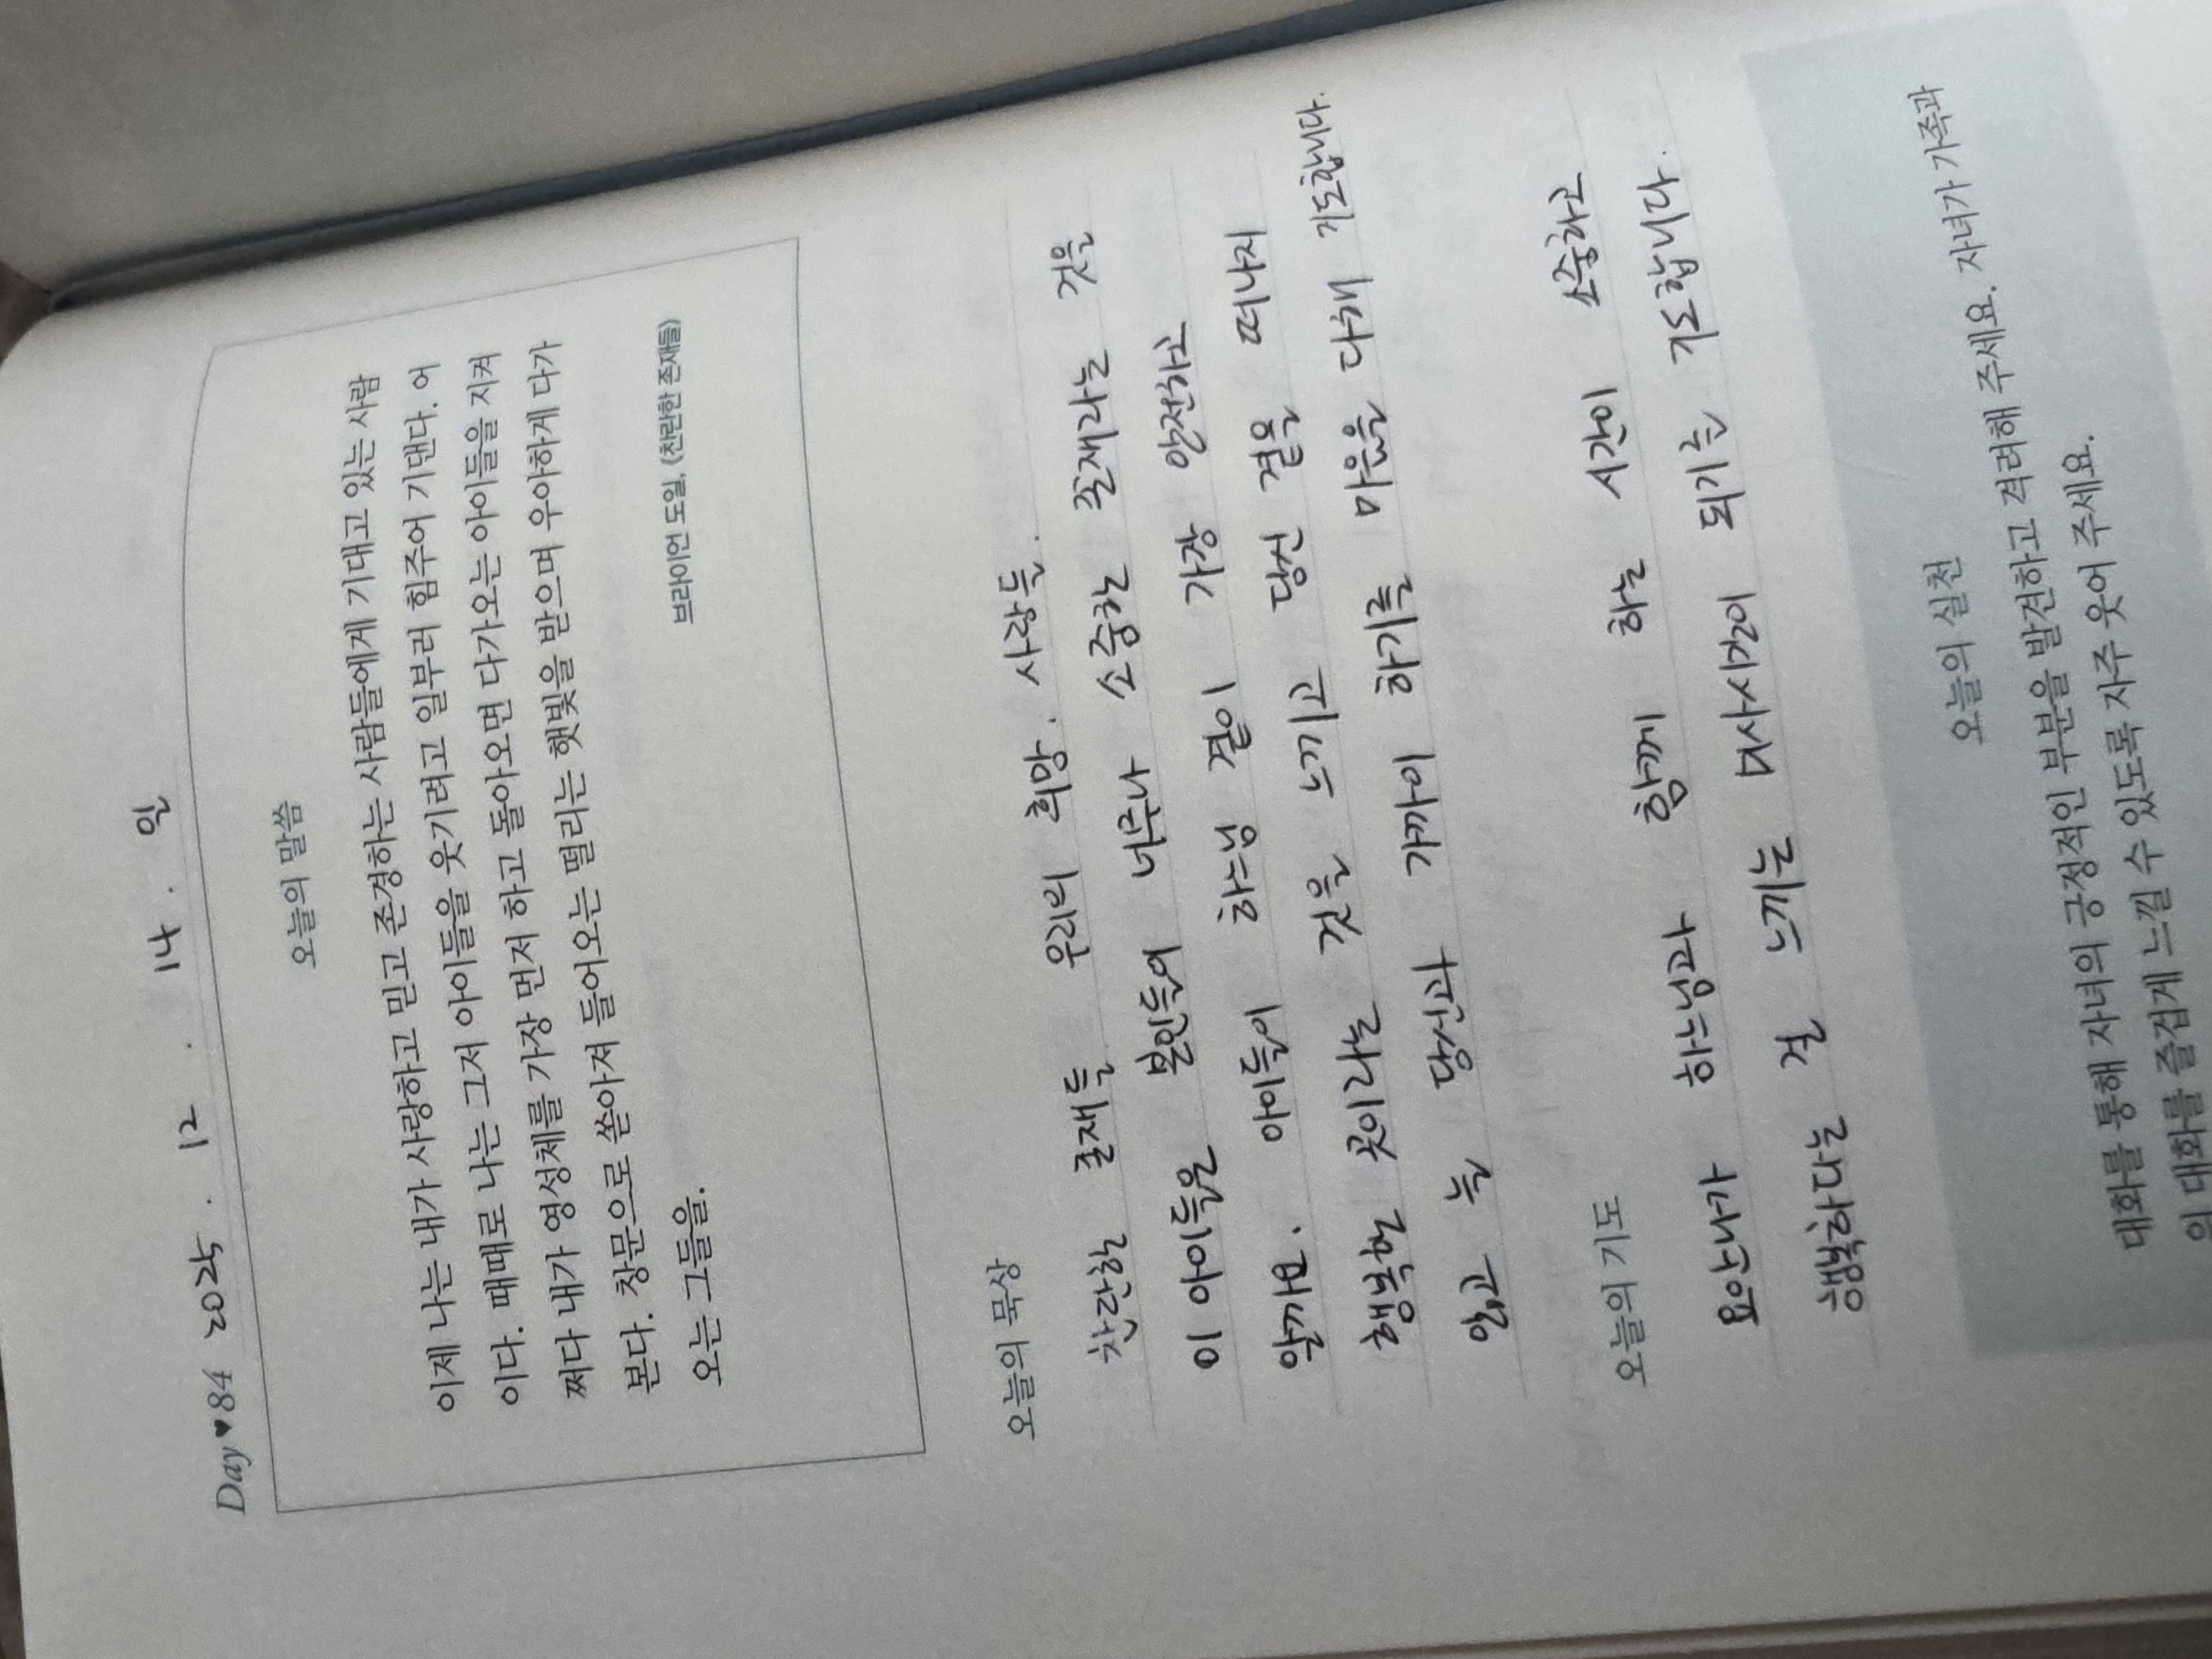 Day ♥ 84 2025 . 12 . 14 . 일
오늘의 말씀
이제 나는 내가 사랑하고 믿고 존경하는 사람들에게 기대고 있는 사람
이다. 때때로 나는 그저 아이들을 웃기려고 일부러 힘주어 기댄다. 어
쩌다 내가 영성체를 가장 먼저 하고 돌아오면 다가오는 아이들을 지켜
본다. 창문으로 쏟아져 들어오는 떨리는 햇빛을 받으며 우아하게 다가
오는 그들을.
브라이언 도일, 《찬란한 존재들》
오늘의 묵상
찬란한 존재들 우리의 희망. 사랑들.
이 아이들은 본인들이 너무나 소중한 존재라는 것을
알까요. 아이들이 하느님 곁이 가장 안전하고
행복한 곳이라는 것을 느끼고 당신 곁을 떠나지
않고 늘 당신과 가까이 하기를 마음을 다해 기도합니다.
오늘의 기도
요안나가 하느님과 함께 하는 시간이 소중하고
행복하다는 걸 느끼는 미사시간이 되기를 기도합니다.
오늘의 실천
대화를 통해 자녀의 긍정적인 부분을 발견하고 격려해 주세요. 자녀가 가족과
의 대화를 즐겁게 느낄 수 있도록 자주 웃어 주세요.